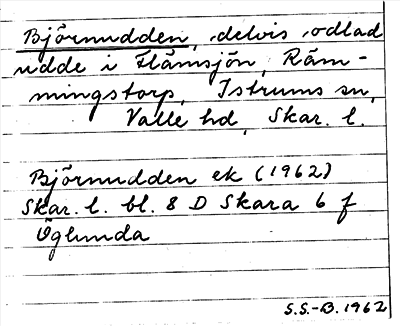 Björnudden, delvis odlad
udde i Flämsjön, Räm-
mingstorp, Istrums sn,
Valle hd, Skar. l.
Björnudden ek (1962)
Skar. l. bl. 8 D Skara 6 f
Öglunda
S.S.-B. 1962